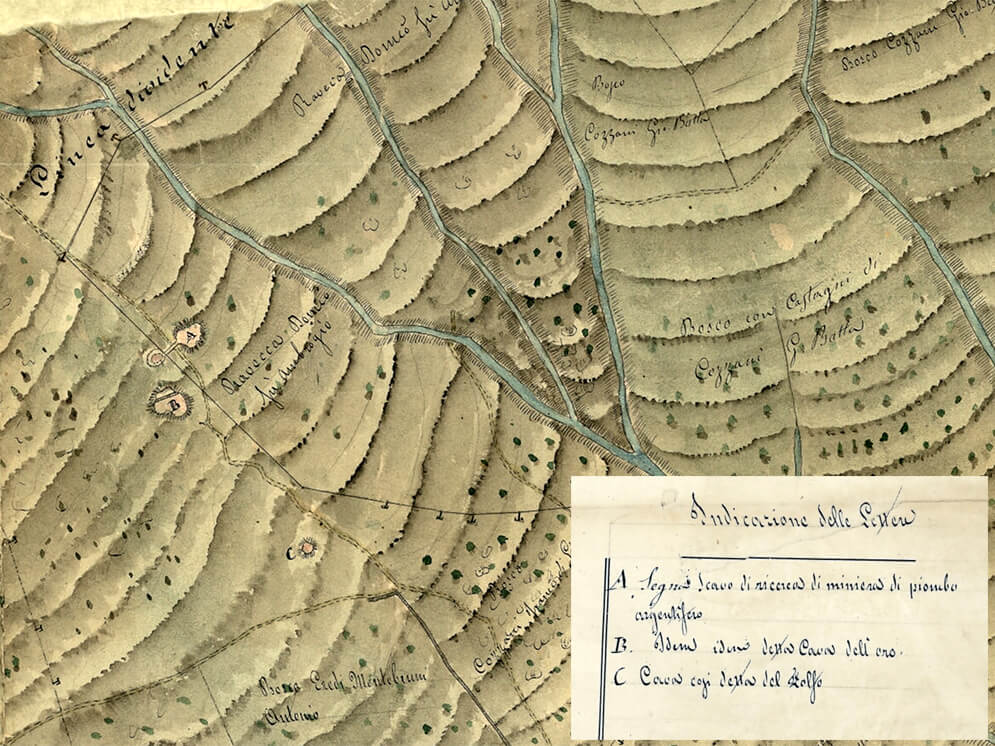 Linea dividente
Ravecca Domco fu A
Bosco
Cozzani Gio. Batta
Bosco Cozzani Gio. Ba
Ravecca Domco
fu Ambrogio
Bosco con Castagni di
Cozzani G. Batta
A
B
C
Bosco Eredi Montebruni
Antonio
Cozzani
Indicazione delle Lettere
A. Segna Scavo di ricerca di miniera di piombo
argentifero
B. Idem idem detta Cava dell' oro.
C Cava così detta del Zolfo